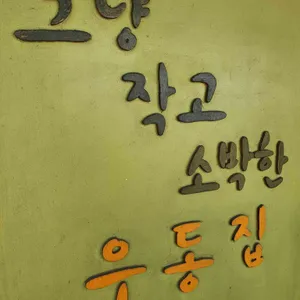 그냥
작고
소박한
우동집